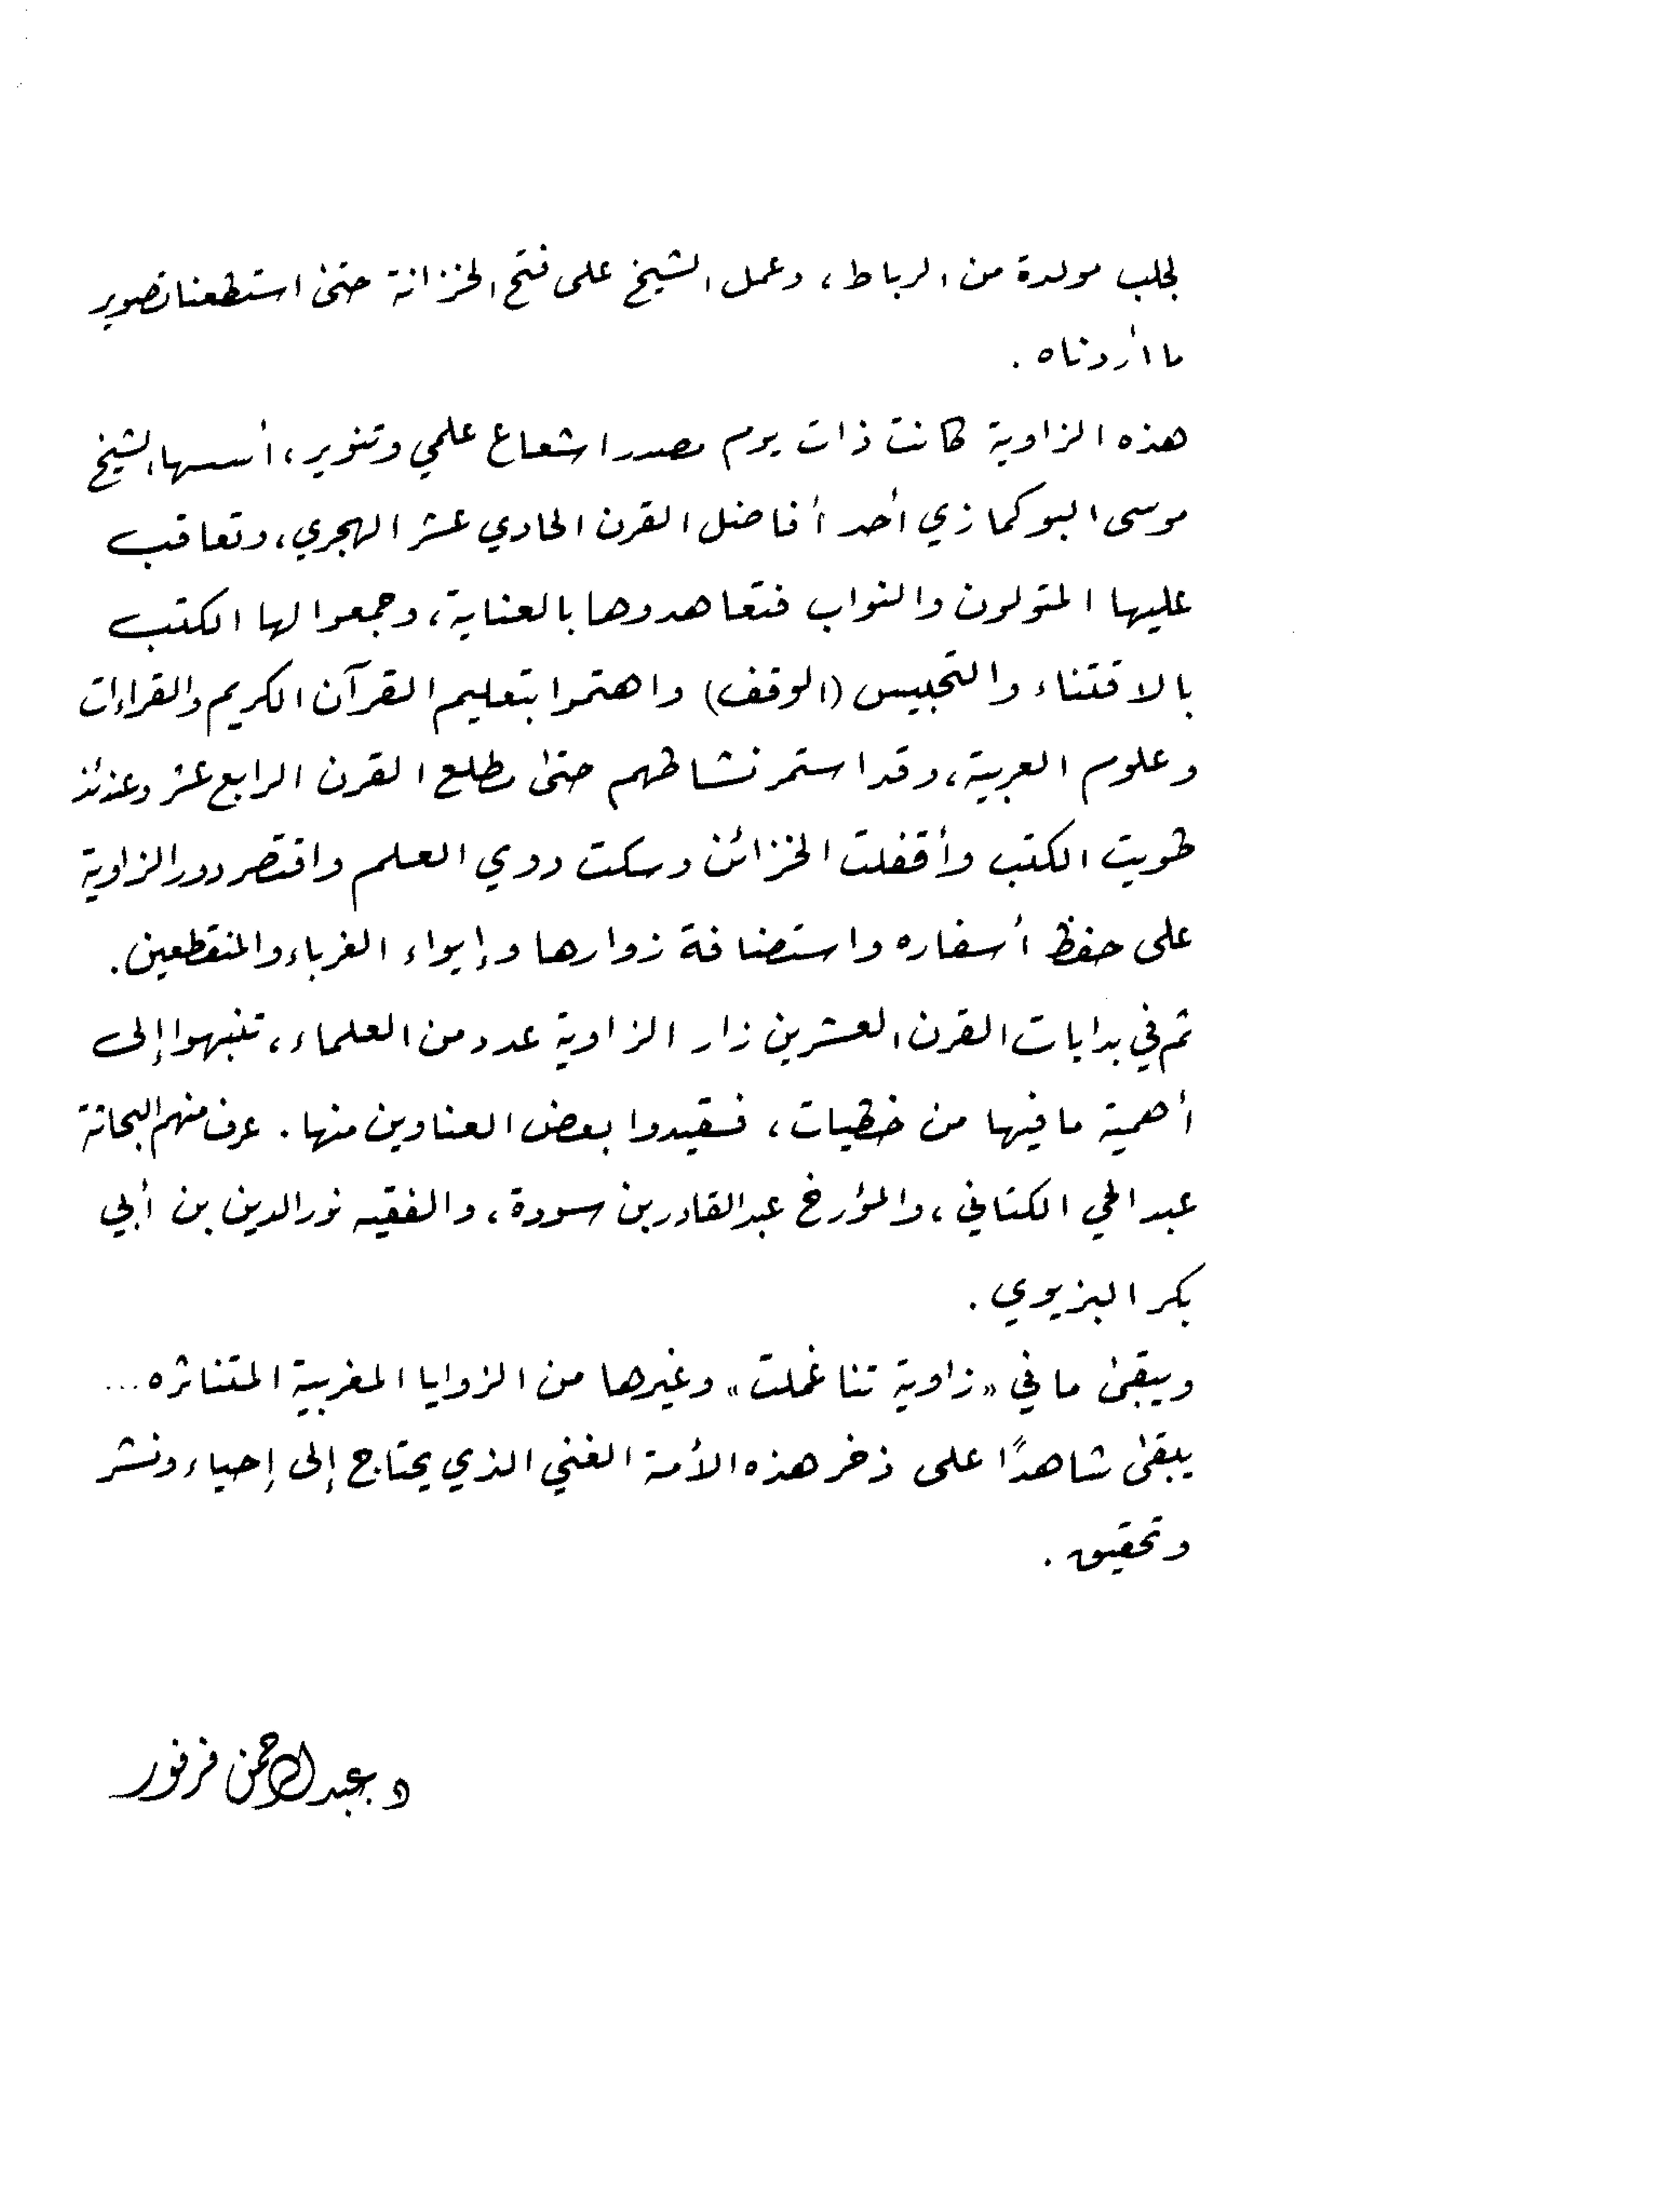 لجلب مولدة من الرباط، وعمل الشيخ على فتح الخزانة حتى استطعنا تصوير
ما أردناه .
هذه الزاوية كانت ذات يوم مصدر اشعاع علمي وتنوير، أسسها الشيخ
موسى البوكمازي أحد أفاضل القرن الحادي عشر الهجري، وتعاقب
عليها المتولون والنواب فتعاهدوها بالعناية، وجمعوا لها الكتب
بالاقتناء والتحبيس (الوقف) واهتموا بتعليم القرآن الكريم والقراءات
وعلوم العربية، وقد استمر نشاطهم حتى مطلع القرن الرابع عشر وعندئذ
طويت الكتب وأقفلت الخزائن وسكت دوي العلم واقتصر دور الزاوية
على حفظ أسفاره واستضافة زوارها وإيواء الغرباء والمنقطعين.
ثم في بدايات القرن العشرين زار الزاوية عدد من العلماء، تنبهوا إلى
أهمية ما فيها من خطيات، فقيدوا بعض العناوين منها. عرف منهم البحاثة
عبد الحي الكتاني، والمؤرخ عبد القادر بن سودة، والفقيه نور الدين بن أبي
بكر البزيوي .
ويبقى ما في «زاوية تناغملت» وغيرها من الزوايا المغربية المتناثره ...
يبقى شاهدًا على ذخر هذه الأمة الغني الذي يحتاج إلى إحياء ونشر
وتحقيق .
د. عبد الرحمن فرفور